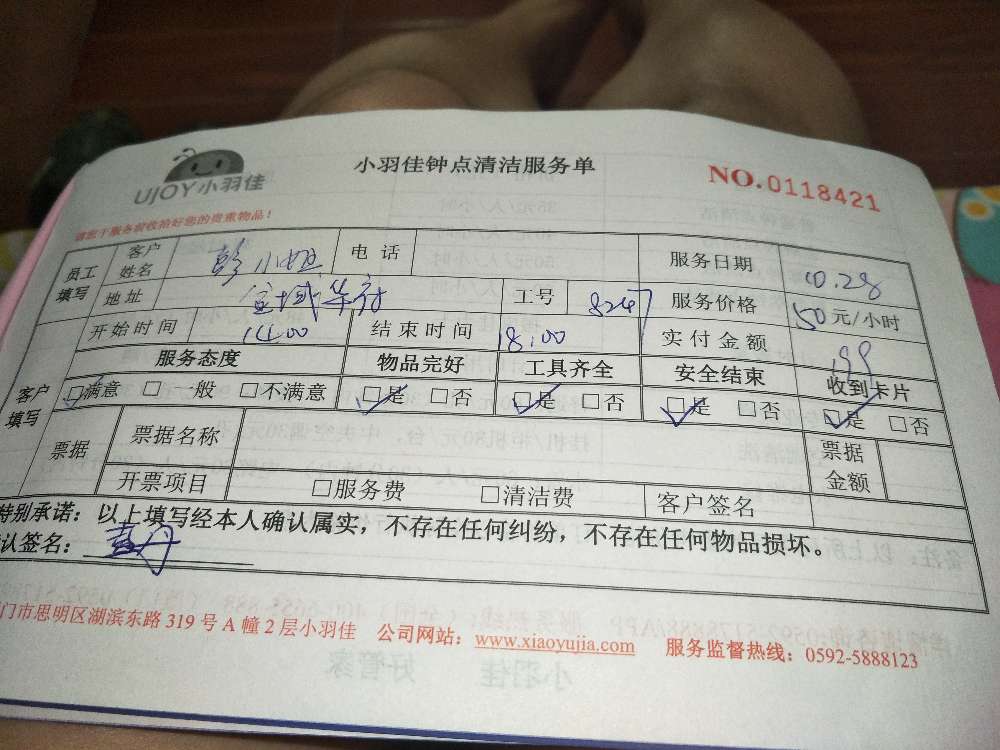 UJOY小羽佳
小羽佳钟点清洁服务单
NO.0118421
请您于服务前收拾好您的贵重物品！
员工填写 客户姓名 彭小姐 电话 服务日期 10.28
地址 金域华府 工号 8247 服务价格 50元/小时
开始时间 14:00 结束时间 18:00 实付金额 199
客户填写 服务态度 物品完好 工具齐全 安全结束 收到卡片
□满意 □一般 □不满意 □是 □否 □是 □否 □是 □否 □是 □否
票据 票据名称 票据金额
开票项目 □服务费 □清洁费 客户签名
特别承诺：以上填写经本人确认属实，不存在任何纠纷，不存在任何物品损坏。
认签名：
门市思明区湖滨东路 319 号 A 幢 2 层小羽佳 公司网站：www.xiaoyujia.com 服务监督热线：0592-5888123